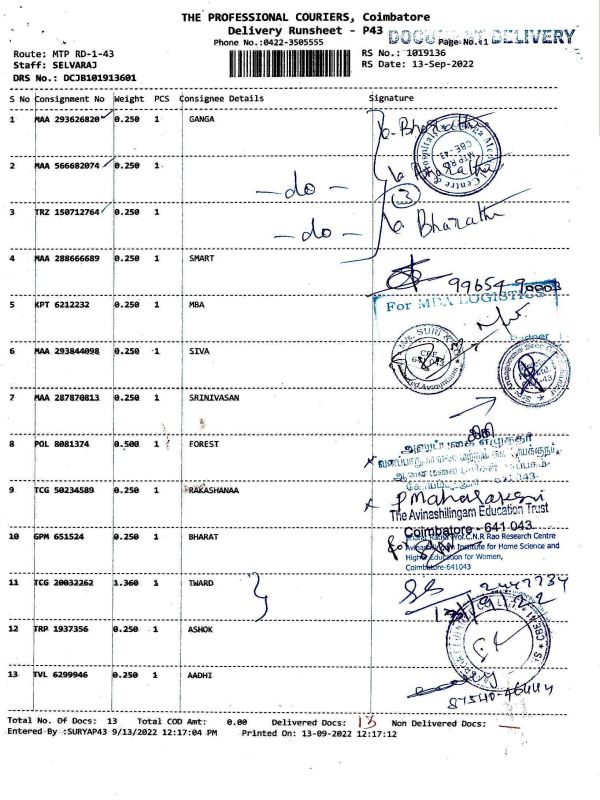 THE PROFESSIONAL COURIERS, Coimbatore
Delivery Runsheet - P43
DOCUMENT DELIVERY
Phone No.:0422-3505555
Page No.:1
Route: MTP RD-1-43
RS No.: 1019136
Staff: SELVARAJ
RS Date: 13-Sep-2022
DRS No.: DCJB101913601
S No Consignment No Weight PCS Consignee Details Signature
1 MAA 293626820 0.250 1 GANGA
Bharathi
2 MAA 566682074 0.250 1
- do -
Bharathi
3
3 TRZ 150712764 0.250 1
- do -
Bharathi
4 MAA 288666689 0.250 1 SMART
5 KPT 6212232 0.250 1 MBA
For MBA LOGISTICS
6 MAA 293844098 0.250 1 SIVA
7 MAA 287870813 0.250 1 SRINIVASAN
8 POL 8081374 0.500 1 FOREST
9 TCG 50234589 0.250 1 RAKASHANAA
The Avinashilingam Education Trust
Coimbatore - 641 043
10 GPM 651524 0.250 1 BHARAT
Bharat Ratna Prof.C.N.R Rao Research Centre
Avinashilingam Institute for Home Science and
Higher Education for Women,
Coimbatore-641043
11 TCG 20032262 1.360 1 TWARD
12 TRP 1937356 0.250 1 ASHOK
13 TVL 6299946 0.250 1 AADHI
Total No. Of Docs: 13 Total COD Amt: 0.00 Delivered Docs: 13 Non Delivered Docs:
Entered By :SURYAP43 9/13/2022 12:17:04 PM Printed On: 13-09-2022 12:17:12